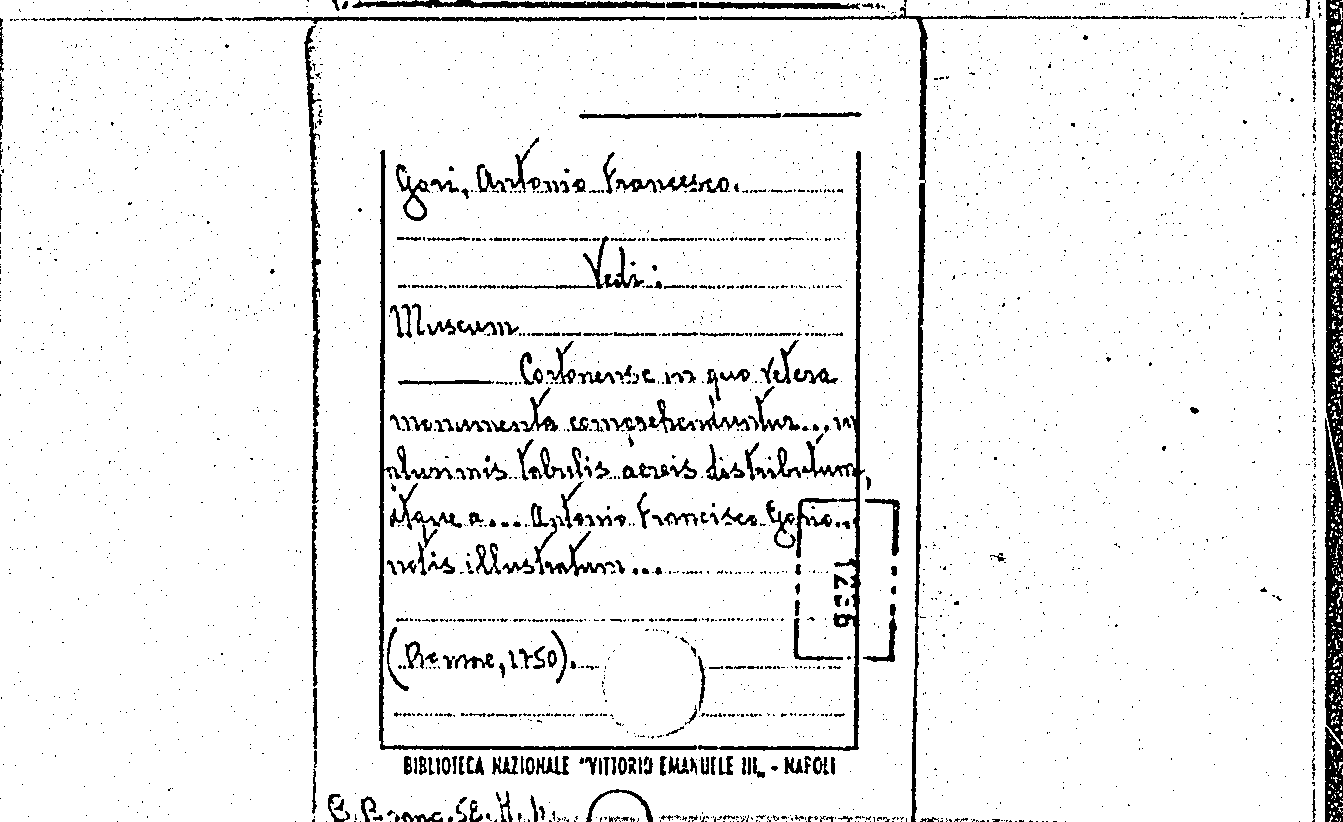 Gori, Antonio Francesco.
Vedi:
Museum
Cortonense in quo vetera
monumenta comprehenduntur... in
plurimis tabulis aereis distributum,
atque a... Antonio Francisco Gorio...
notis illustratum...
1236
(Romae, 1750).
BIBLIOTECA NAZIONALE "VITTORIO EMANUELE III„ - NAPOLI
B. Branc.